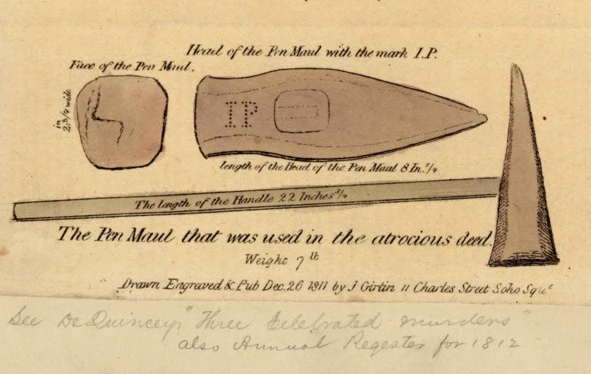 Head of the Pen Maul with the mark I.P.
Face of the Pen Maul.
in
2,3/4 wide
IP
length of the Head of the Pen Maul 8 In.s/4
The length of the Handle 22 Inches 3/4
The Pen Maul that was used in the atrocious deed.
Weight 7 lb
Drawn Engraved & Pub Dec. 26 1811 by J Girtin 11 Charles Street Soho Sque
See De Quincey's "Three Celebrated Murders"
also Annual Register for 1812